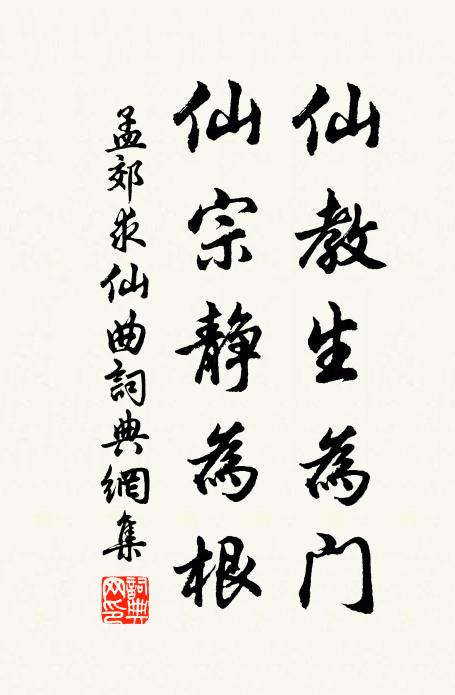 仙教生為门
仙宗静為根
孟郊求仙曲詞典網集
詞典網印